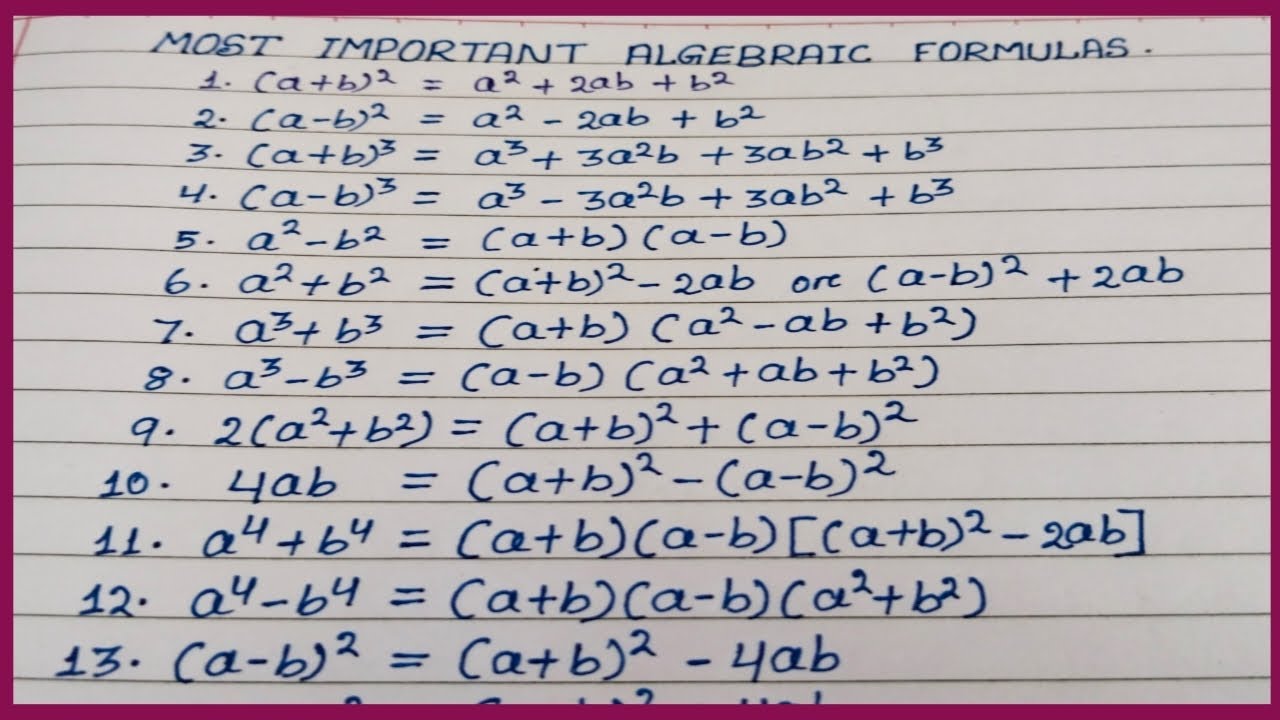 MOST IMPORTANT ALGEBRAIC FORMULAS.
1. (a+b)² = a² + 2ab + b²
2. (a-b)² = a² - 2ab + b²
3. (a+b)³ = a³ + 3a²b + 3ab² + b³
4. (a-b)³ = a³ - 3a²b + 3ab² + b³
5. a² - b² = (a+b) (a-b)
6. a² + b² = (a+b)² - 2ab ore (a-b)² + 2ab
7. a³ + b³ = (a+b) (a² - ab + b²)
8. a³ - b³ = (a-b) (a² + ab + b²)
9. 2(a² + b²) = (a+b)² + (a-b)²
10. 4ab = (a+b)² - (a-b)²
11. a⁴ + b⁴ = (a+b)(a-b)[(a+b)² - 2ab]
12. a⁴ - b⁴ = (a+b)(a-b)(a² + b²)
13. (a-b)² = (a+b)² - 4ab